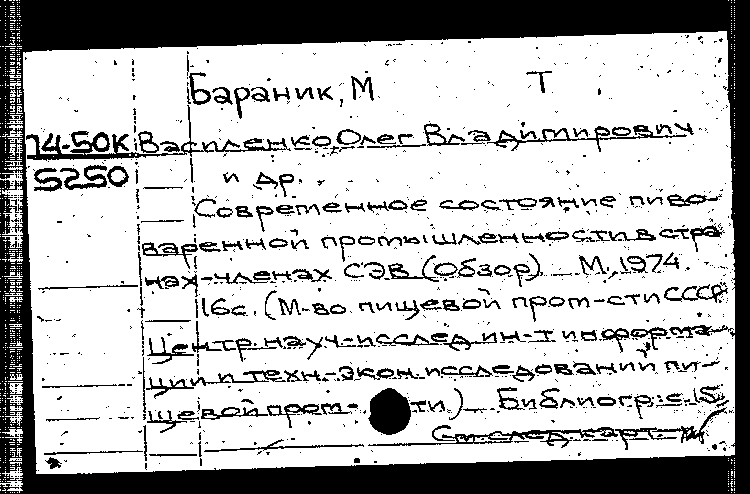 Бараник, М Т
74-50К Василенко, Олег Владимирович
5250 и др.
Современное состояние пиво-
варенной промышленности в стра-
нах-членах СЭВ (Обзор) М., 1974.
16с. (М-во пищевой пром-сти СССР
Центр. науч.-исслед. ин-т информа-
ции и техн.-экон. исследований пи-
щевой пром- ти) Библиогр: с. 15
См. след. карт.